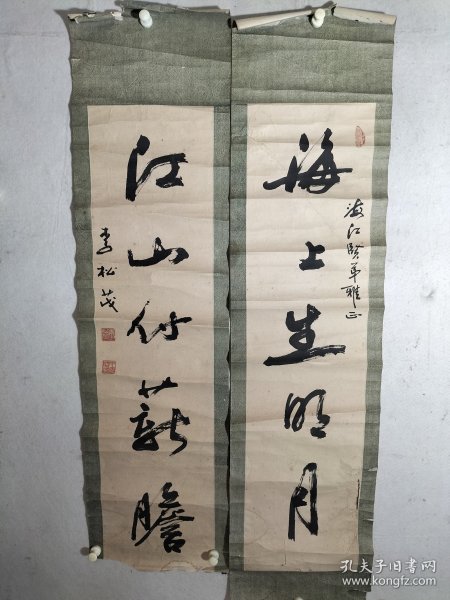 海上生明月
海江賢弟雅正
江山付薪膽
李松茂
孔夫子旧书网
www.kongfz.com